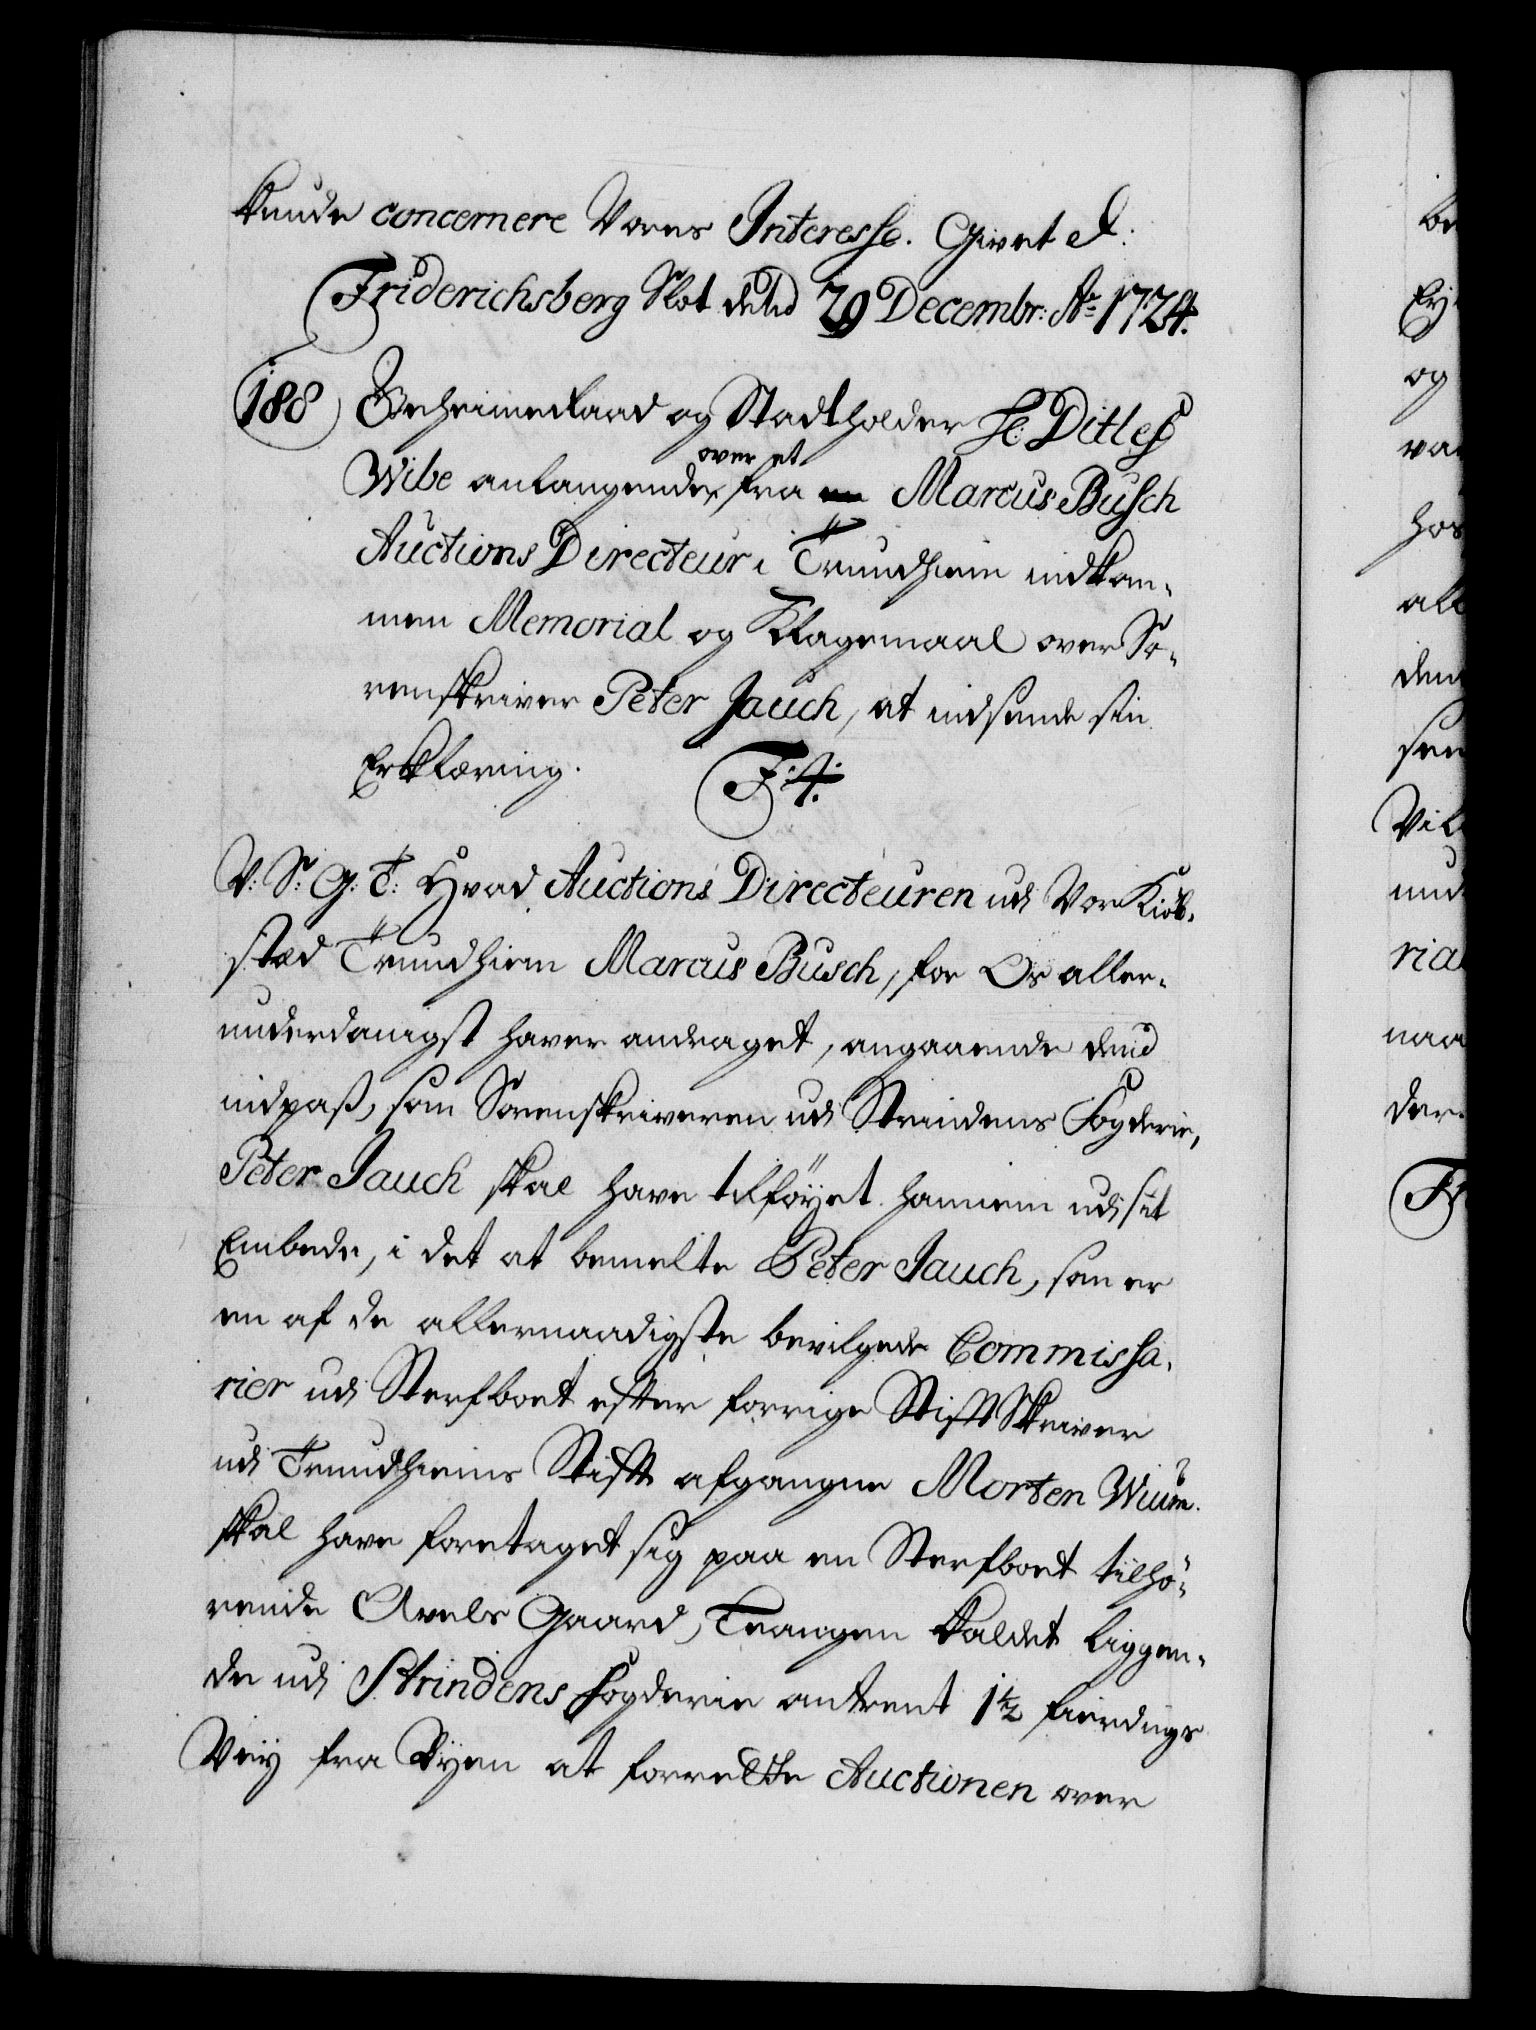 kunde concernere Vores Interesse. Givet &:
Friderichsberg Slot dend 29 Decembr: Ao 1724.
188 Geheimeraad og Stadtholder H: Ditlef
Wibe anlangende over et fra Marcus Busch
Auctions Directeur i Trundhiem indkom-
men Memorial og Klagemaal over So-
renskriver Peter Jauch, at indsende sin
Erklæring. F: 4.
V: S: G: T: Hvad Auctions Directeuren udi Vor Kiöb-
stæd Trundhiem Marcus Busch, for Os aller-
underdanigst haver andraget, angaaende dend
indpass, som Sorenskriveren udi Strindens Fogderie,
Peter Jauch skal have tilföyet hannem udi sit
Embede, i det at bemelte Peter Jauch, som er
en af de allernaadigste bevilgede Commissa-
rier udi Sterfboet efter forrige Stiftskriver
udi Trundhiems Stift afgangne Morten Wium.
skal have foretaget sig paa en Sterfboet tilhö-
rende Avels Gaard, Trangen kaldet liggen-
de udi Strindens Fogderie omtrent 1 1/2 fierdings
Veij fra Byen at forrette Auctionen over